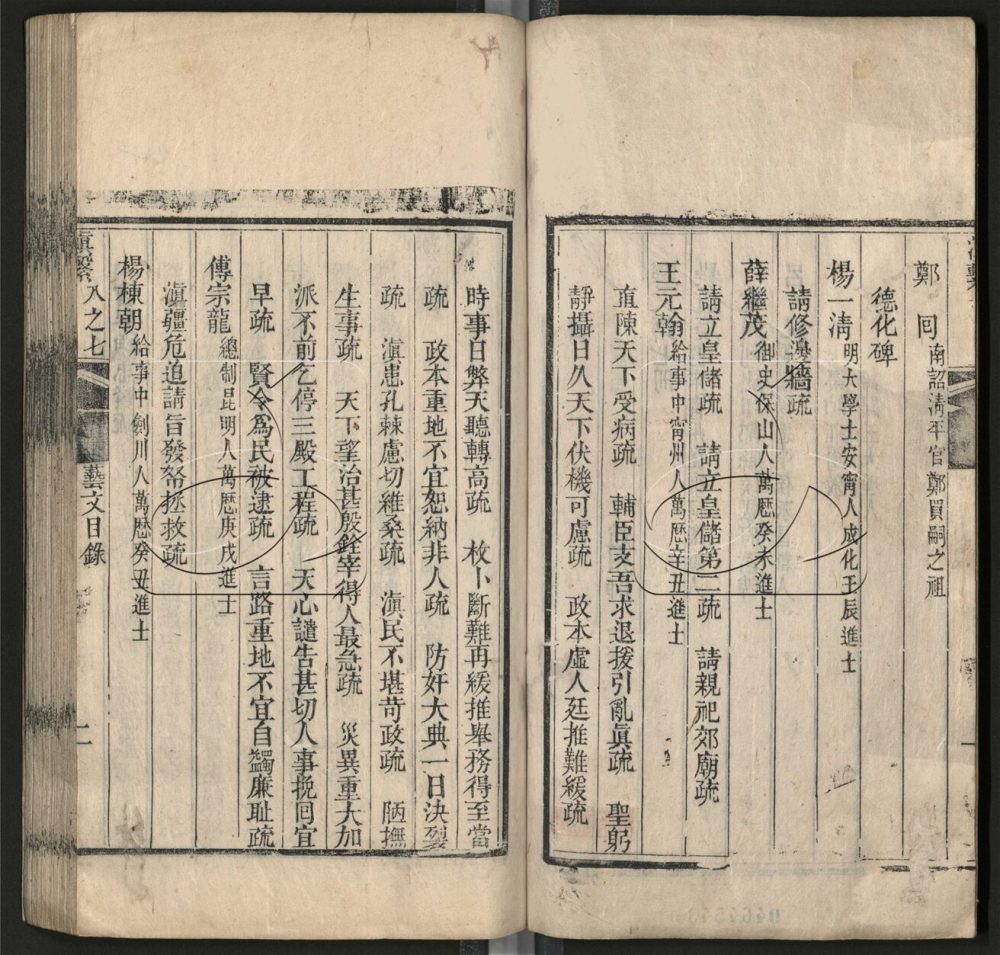 鄭　回 南詔淸平官鄭買嗣之祖
德化碑
楊一淸 明大學士安甯人成化壬辰進士
請修邊牆疏
薛繼茂 御史保山人萬厯癸未進士
請立皇儲疏　請立皇儲第二疏　請親祀郊廟疏
王元翰 給事中甯州人萬厯辛丑進士
直陳天下受病疏　輔臣支吾求退援引亂眞疏　聖躬
靜攝日久天下伏機可慮疏　政本虛人廷推難緩疏
時事日弊天聽轉高疏　枚卜斷難再緩推舉務得至當
疏　政本重地不宜恕納非人疏　防奸大典一日決裂
疏　滇患孔棘慮切維桑疏　滇民不堪苛政疏　陋撫
生事疏　天下望治甚殷銓宰得人最急疏　災異重大加
派不前乞停三殿工程疏　天心譴吿甚切人事挽囘宜
早疏　賢令爲民被逮疏　言路重地不宜自蠲廉耻疏
傅宗龍 總制昆明人萬厯庚戌進士
滇疆危迫請旨發帑拯救疏
楊棟朝 給事中劍川人萬厯癸丑進士
滇繫 八之七　藝文目錄　二